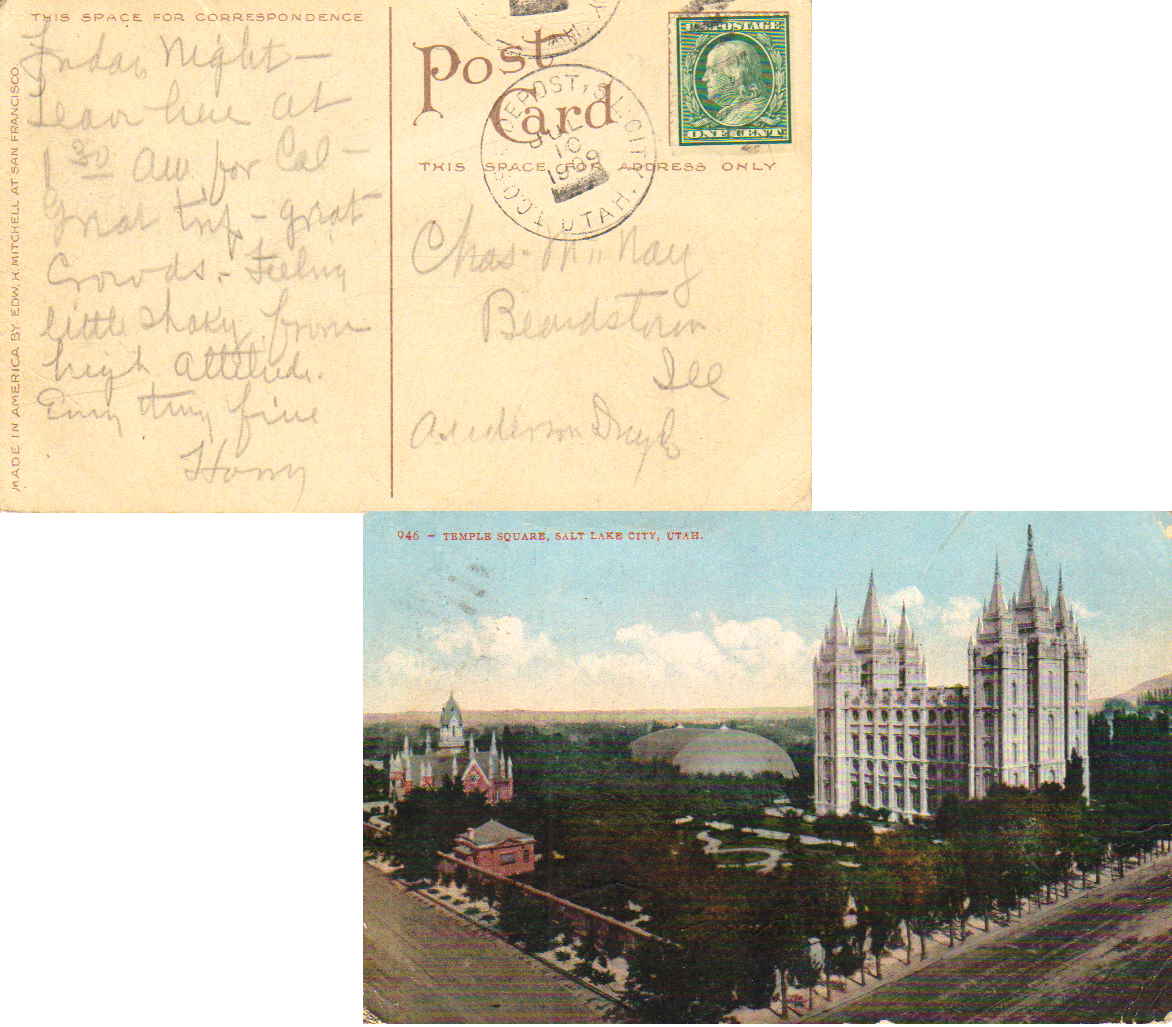 THIS SPACE FOR CORRESPONDENCE
Friday Night –
Leave here at
1 30 AM for Cal –
Great trip – great
Crowds – Feeling
little shaky from
high attitude.
Every thing fine
Harry
MADE IN AMERICA BY EDW. H. MITCHELL AT SAN FRANCISCO
Post
Card
THIS SPACE FOR ADDRESS ONLY
DEPOT, S.L. CITY
JUL
10
1909
UTAH.
U.S. POSTAGE
ONE CENT
Chas. McNay
Beardstown
Ill
Anderson
946 – TEMPLE SQUARE, SALT LAKE CITY, UTAH.